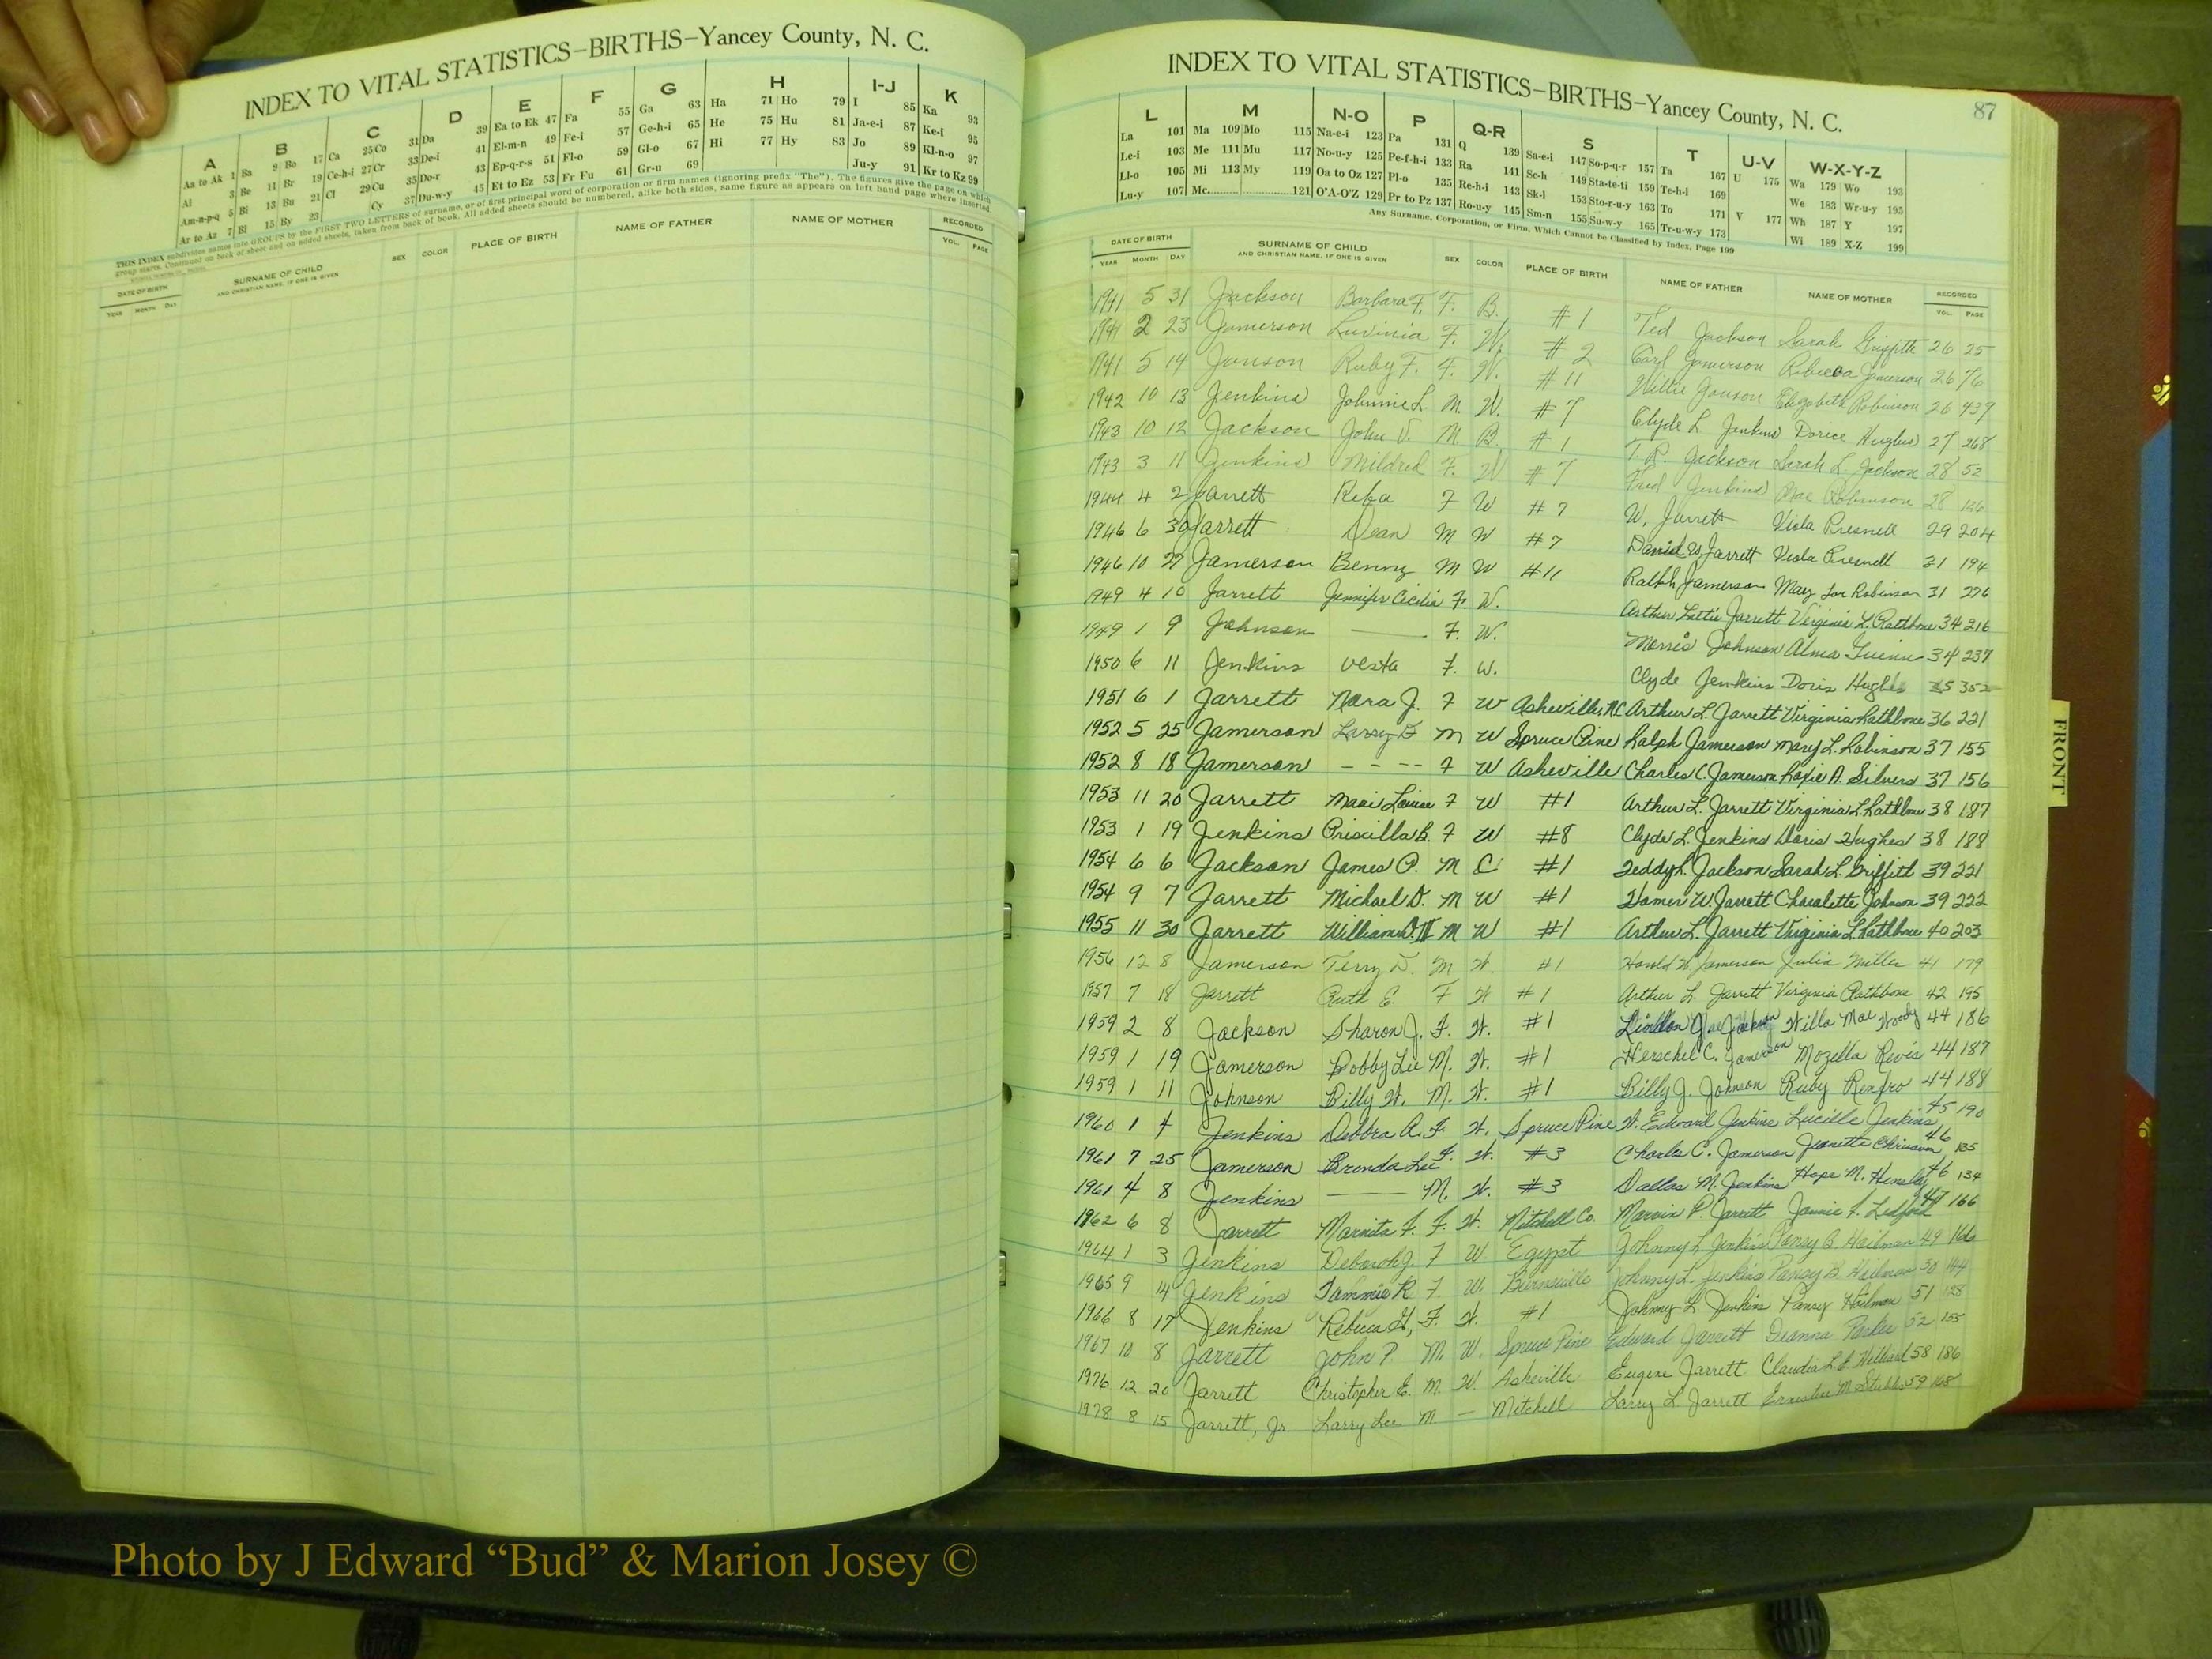 INDEX TO VITAL STATISTICS–BIRTHS–Yancey County, N. C.
A B C D E F G H I-J K
Aa to Ak 1 Ba 9 Bo 17 Ca 25 Co 31 Da 39 Ea to Ek 47 Fa 55 Ga 63 Ha 71 Ho 79 I 85 Ka 93
Al 3 Be 11 Br 19 Ce-h-i 27 Cr 33 De-i 41 El-m-n 49 Fe-i 57 Ge-h-i 65 He 75 Hu 81 Ja-e-i 87 Ke-i 95
Am-n-p-q 5 Bi 13 Bu 21 Cl 29 Cu 35 Do-r 43 Ep-q-r-s 51 Fl-o 59 Gl-o 67 Hi 77 Hy 83 Jo 89 Kl-n-o 97
Ar to Az 7 Bl 15 By 23 Cy 37 Du-w-y 45 Et to Ez 53 Fr Fu 61 Gr-u 69 Ju-y 91 Kr to Kz 99
THIS INDEX subdivides names into GROUPS by the FIRST TWO LETTERS of surname, or of first principal word of corporation or firm names (ignoring prefix "The"). The figures give the page on which
group starts. Continued on back of sheet and on added sheets, taken from back of book. All added sheets should be numbered, alike both sides, same figure as appears on left hand page where inserted.
DATE OF BIRTH SURNAME OF CHILD SEX COLOR PLACE OF BIRTH NAME OF FATHER NAME OF MOTHER RECORDED
YEAR MONTH DAY AND CHRISTIAN NAME, IF ONE IS GIVEN VOL. PAGE
INDEX TO VITAL STATISTICS–BIRTHS–Yancey County, N. C. 87
L M N-O P Q-R S T U-V W-X-Y-Z
La 101 Ma 109 Mo 115 Na-e-i 123 Pa 131 Q 139 Sa-e-i 147 So-p-q-r 157 Ta 167 U 175 Wa 179 Wo 193
Le-i 103 Me 111 Mu 117 No-u-y 125 Pe-f-h-i 133 Ra 141 Sc-h 149 Sta-te-ti 159 Te-h-i 169 We 183 Wr-u-y 195
Ll-o 105 Mi 113 My 119 Oa to Oz 127 Pl-o 135 Re-h-i 143 Sk-l 153 Sto-r-u-y 163 To 171 V 177 Wh 187 Y 197
Lu-y 107 Mc. 121 O'A-O'Z 129 Pr to Pz 137 Ro-u-y 145 Sm-n 155 Su-w-y 165 Tr-u-w-y 173 Wi 189 X-Z 199
Any Surname, Corporation, or Firm, Which Cannot be Classified by Index, Page 199
DATE OF BIRTH SURNAME OF CHILD SEX COLOR PLACE OF BIRTH NAME OF FATHER NAME OF MOTHER RECORDED
YEAR MONTH DAY AND CHRISTIAN NAME, IF ONE IS GIVEN VOL. PAGE
1941 5 31 Jackson Barbara F. F. B. #1 Ted Jackson Sarah Griffith 26 25
1941 2 23 Jamerson Luvinia F. W. #2 Carl Jamerson Rebecca Jamerson 26 76
1941 5 14 Janson Ruby F. F. W. #11 Janson Elizabeth Robinson 26 439
1942 10 13 Jenkins Johnnie L. M. W. #7 Clyde L Jenkins Dorice Hughes 27 268
1943 10 12 Jackson John V. M. B. #1 T. R. Jackson Sarah L Jackson 28 52
1943 3 11 Jenkins Mildred F. W #7 Fred Jenkins Mae Robinson 28 126
1944 4 2 Jarrett Reba F W #7 W. Jarrett Viola Presnell 29 204
1946 6 30 Jarrett Dean M W #7 David W Jarrett Viola Presnell 31 194
1946 10 27 Jamerson Benny M W #11 Ralph Jamerson Mary Lou Robinson 31 276
1949 4 10 Jarrett Jennifer Cecilia F. W. Arthur Jarrett Virginia L. Rathbone 34 216
1949 1 9 Johnson —— F. W. Morris Johnson Alma 34 237
1950 6 11 Jenkins Vesta F. W. Clyde Jenkins Doris Hughes 35 352
1951 6 1 Jarrett Nora J. F W Asheville, NC Arthur L. Jarrett Virginia Rathbone 36 221
1952 5 25 Jamerson Larry D M W Spruce Pine Ralph Jamerson Mary L. Robinson 37 155
1952 8 18 Jamerson - - -- F W Asheville Charles C. Jamerson Roxie A. Silvers 37 156
1953 11 20 Jarrett Louise F W #1 Arthur L. Jarrett Virginia L. Rathbone 38 187
1953 1 19 Jenkins Priscilla B. F W #8 Clyde L. Jenkins Doris Hughes 38 188
1954 6 6 Jackson James P. M C #1 Teddy L. Jackson Sarah L. Griffith 39 221
1954 9 7 Jarrett Michael D. M W #1 Homer W. Jarrett Johnson 39 222
1955 11 30 Jarrett William M W #1 Arthur L. Jarrett Virginia L Rathbone 40 203
1956 12 8 Jamerson Terry D. M W. #1 Harold W Jamerson Julia Miller 41 179
1957 7 18 Jarrett Ruth E. F W #1 Arthur L Jarrett Virginia Rathbone 42 195
1959 2 8 Jackson Sharon J. F. W. #1 Jackson Willa Mae Woody 44 186
1959 1 19 Jamerson Bobby Lee M. W. #1 Herschel C. Jamerson Mozella Revis 44 187
1959 1 11 Johnson Billy W. M. W. #1 Billy J. Johnson Ruby Renfro 44 188
1960 1 4 Jenkins Debbra A. F W. Spruce Pine W. Edward Jenkins Lucille Jenkins 45 190
1961 7 25 Jamerson Brenda Lee F. W. #3 Charles C. Jamerson Jeanette 46
1961 4 8 Jenkins —— M. W. #3 Dallas M. Jenkins Hope M. Hensley 46 134
1962 6 8 Jarrett Marnita F. F. W. Mitchell Co. Marvin P. Jarrett Ledford 47 166
1964 1 3 Jenkins Deborah J. F W. Egypt Johnny L Jenkins Pansy B. 49
1965 9 14 Jenkins Tammie R F. W. Burnsville Johnny L. Jenkins Pansy B 50 144
1966 8 17 Jenkins Rebecca F. W. #1 Johnny L. Jenkins Pansy 51
1967 10 8 Jarrett John P. M. W. Spruce Pine Edward Jarrett Deanna Parker 52 155
1976 12 20 Jarrett Christopher E. M. W. Asheville Eugene Jarrett Claudia 58 186
1978 8 15 Jarrett, Jr. Larry Lee M — Mitchell Larry L Jarrett 59 168
FRONT
Photo by J Edward “Bud” & Marion Josey ©